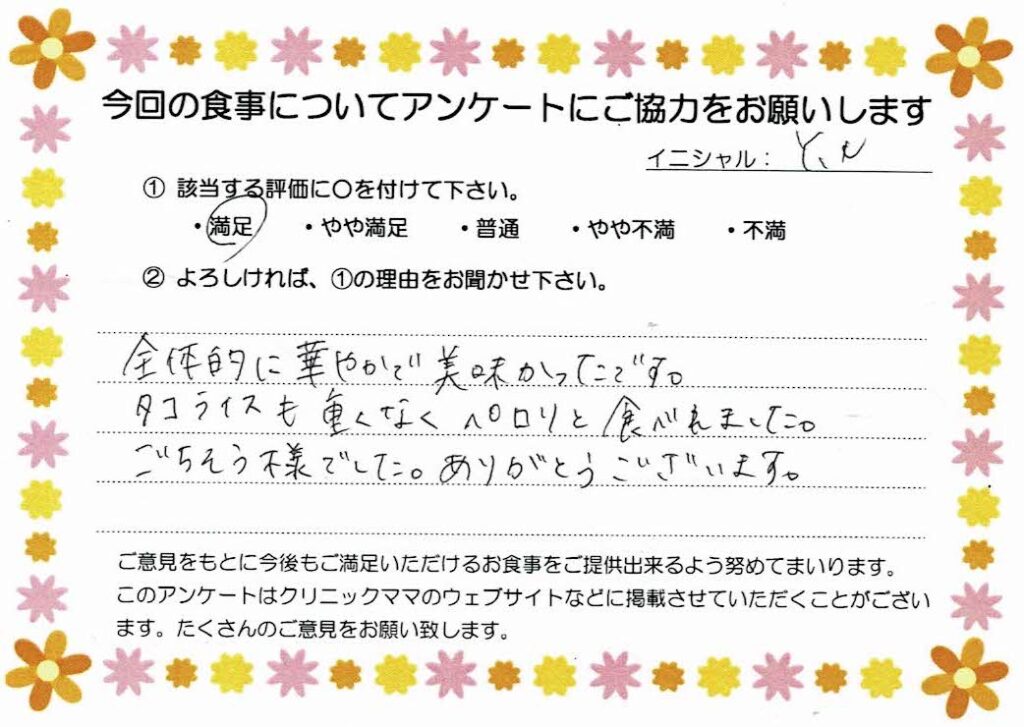 今回の食事についてアンケートにご協力をお願いします
イニシャル： Y、N
① 該当する評価に〇を付けて下さい。
・満足 ・やや満足 ・普通 ・やや不満 ・不満
② よろしければ、①の理由をお聞かせ下さい。
全体的に華やかで美味かったです。
タコライスも重くなくペロリと食べれました。
ごちそう様でした。ありがとうございます。
ご意見をもとに今後もご満足いただけるお食事をご提供出来るよう努めてまいります。
このアンケートはクリニックママのウェブサイトなどに掲載させていただくことがござい
ます。たくさんのご意見をお願い致します。